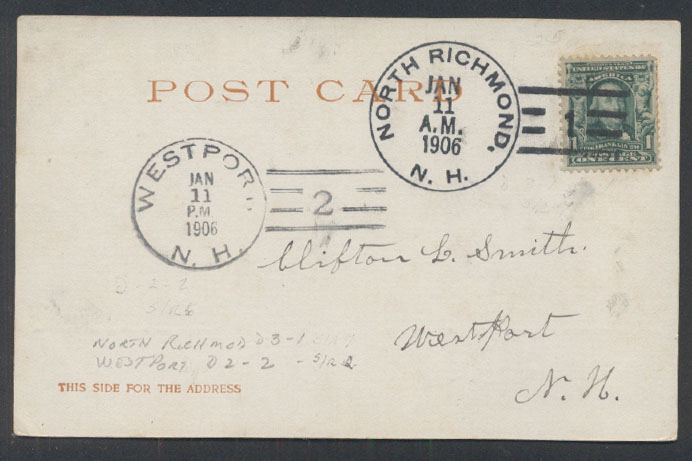 POST CARD
NORTH RICHMOND,
JAN
11
A.M.
1906
N. H.
1
UNITED STATES OF
AMERICA
FRANKLIN
1 1
ONE CENT
WESTPOR
JAN
11
P.M.
1906
N. H.
2
Clifton L. Smith.
WestPort
N. H.
D-2-2
S/R 6
NORTH RICHMOD D3-1
WESTPORT D2-2 - S/R
THIS SIDE FOR THE ADDRESS